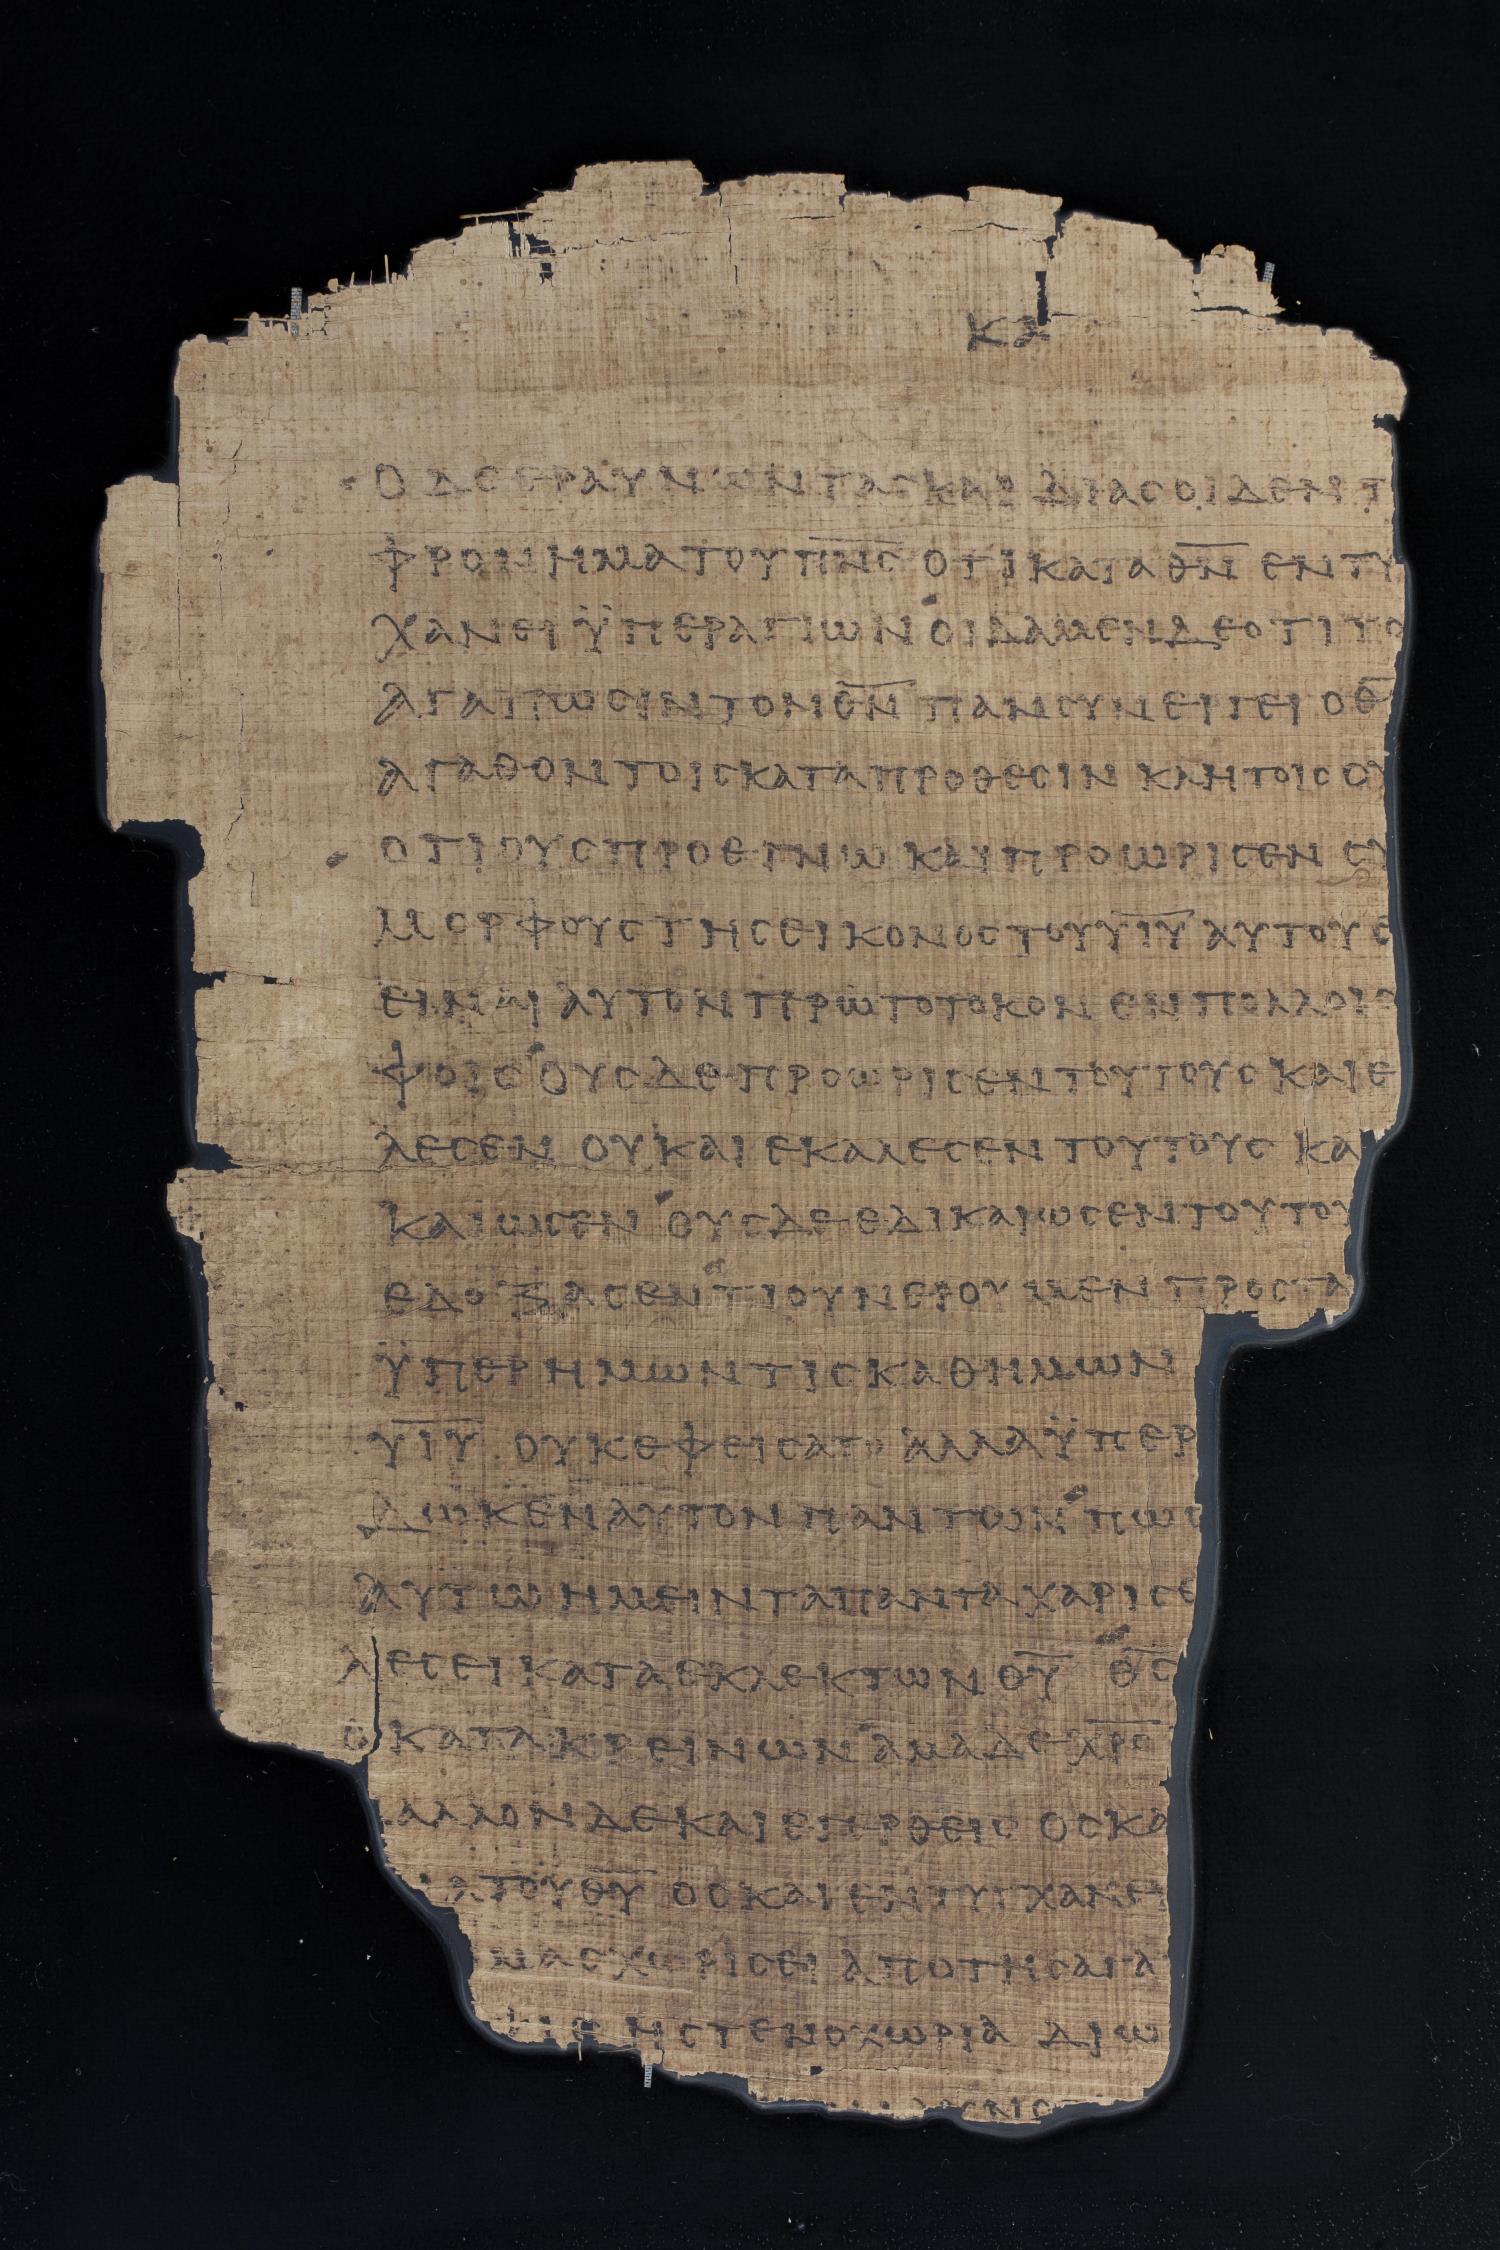 ΚΑ
Ο ΔΕ ΕΡΑΥΝΩΝ ΤΑΣ ΚΑΡΔΙΑΣ ΟΙΔΕΝ Τ
ΦΡΟΝΗΜΑ ΤΟΥ Π̅Ν̅Σ̅ ΟΤΙ ΚΑΤΑ Θ̅Ν̅ ΕΝΤΥ
ΧΑΝΕΙ ΫΠΕΡ ΑΓΙΩΝ ΟΙΔΑΜΕΝ ΔΕ ΟΤΙ ΤΟ
ΑΓΑΠΩΣΙΝ ΤΟΝ Θ̅Ν̅ ΠΑΝ ΣΥΝΕΡΓΕΙ Ο Θ̅
ΑΓΑΘΟΝ ΤΟΙΣ ΚΑΤΑ ΠΡΟΘΕΣΙΝ ΚΛΗΤΟΙΣ ΟΥ
ΟΤΙ ΟΥΣ ΠΡΟΕΓΝΩ ΚΑΙ ΠΡΟΩΡΙΣΕΝ ΣΥ
ΜΟΡΦΟΥΣ ΤΗΣ ΕΙΚΟΝΟΣ ΤΟΥ Υ̅Ι̅Υ̅ ΑΥΤΟΥ Ε
ΕΙΝΑΙ ΑΥΤΟΝ ΠΡΩΤΟΤΟΚΟΝ ΕΝ ΠΟΛΛΟΙΣ
ΦΟΙΣ ΟΥΣ ΔΕ ΠΡΟΩΡΙΣΕΝ ΤΟΥΤΟΥΣ ΚΑΙ Ε
ΛΕΣΕΝ ΟΥ ΚΑΙ ΕΚΑΛΕΣΕΝ ΤΟΥΤΟΥΣ ΚΑ
ΚΑΙΩΣΕΝ ΟΥΣ ΔΕ ΕΔΙΚΑΙΩΣΕΝ ΤΟΥΤΟΥ
ΕΔΟΞΑΣΕΝ ΤΙ ΟΥΝ ΕΡΟΥΜΕΝ ΠΡΟΣ ΤΑ
ΫΠΕΡ ΗΜΩΝ ΤΙΣ ΚΑΘ ΗΜΩΝ
Υ̅Ι̅Υ̅ ΟΥΚ ΕΦΕΙΣΑΤΟ ΑΛΛΑ ΫΠΕΡ
ΔΩΚΕΝ ΑΥΤΟΝ ΠΑΝΤΩΝ ΠΩΣ
ΑΥΤΩ ΗΜΕΙΝ ΤΑ ΠΑΝΤΑ ΧΑΡΙΣΕ
ΛΕΣΕΙ ΚΑΤΑ ΕΚΛΕΚΤΩΝ Θ̅Υ̅ Θ̅Σ̅
Ο ΚΑΤΑΚΡΕΙΝΩΝ ΑΜΑ ΔΕ Χ̅Ρ̅Σ̅
ΑΛΛΟΝ ΔΕ ΚΑΙ ΕΓΕΡΘΕΙΣ ΟΣ ΚΑ
Α ΤΟΥ Θ̅Υ̅ ΟΣ ΚΑΙ ΕΝΤΥΓΧΑΝΕΙ
ΜΑΣ ΧΩΡΙΣΕΙ ΑΠΟ ΤΗΣ ΑΓΑ
ΨΙΣ Η ΣΤΕΝΟΧΩΡΙΑ ΔΙΩ